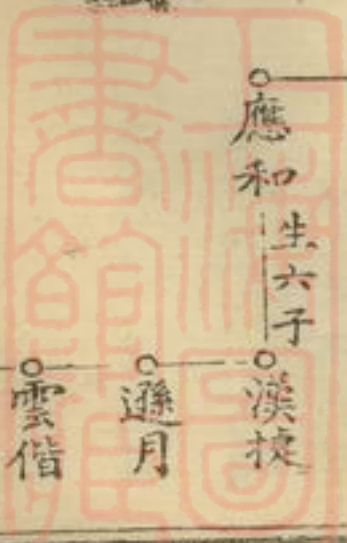 應和
生六子
漢捷
遜月
雲偕